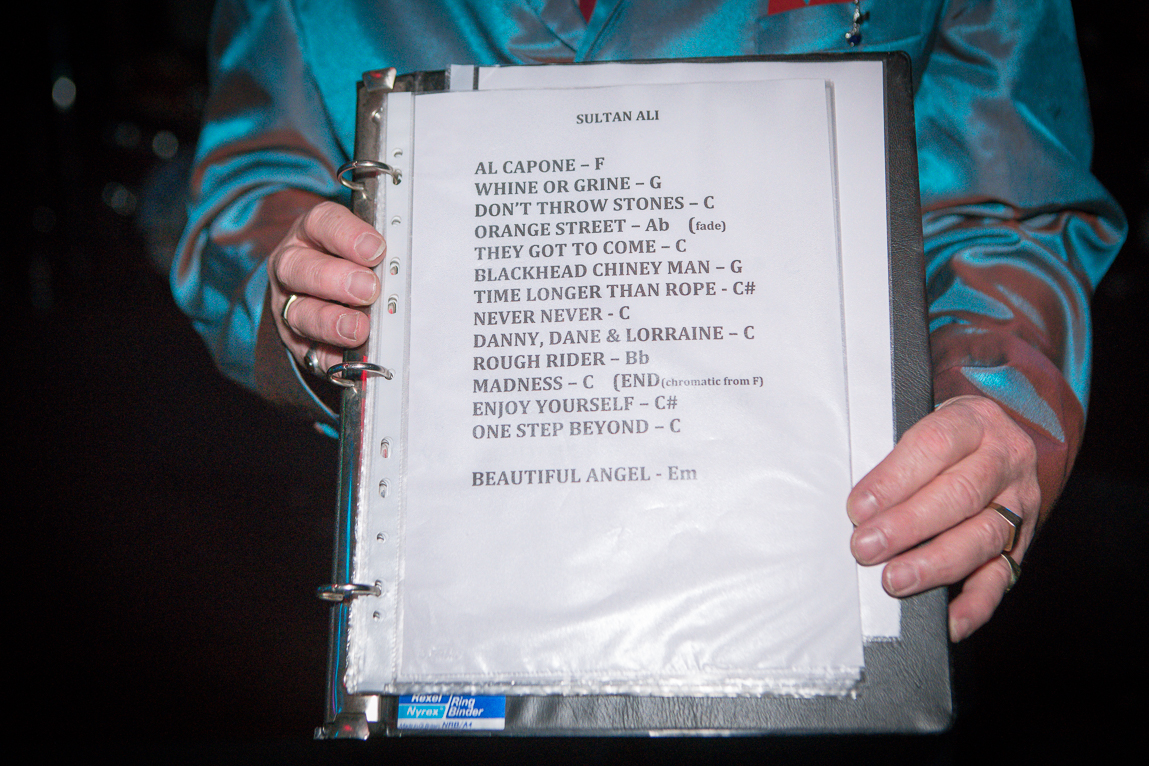 SULTAN ALI
AL CAPONE – F
WHINE OR GRINE – G
DON'T THROW STONES – C
ORANGE STREET – Ab (fade)
THEY GOT TO COME – C
BLACKHEAD CHINEY MAN – G
TIME LONGER THAN ROPE - C#
NEVER NEVER - C
DANNY, DANE & LORRAINE – C
ROUGH RIDER – Bb
MADNESS – C (END(chromatic from F)
ENJOY YOURSELF – C#
ONE STEP BEYOND – C
BEAUTIFUL ANGEL - Em
Rexel
Nyrex
Ring
Binder
NRB/A4